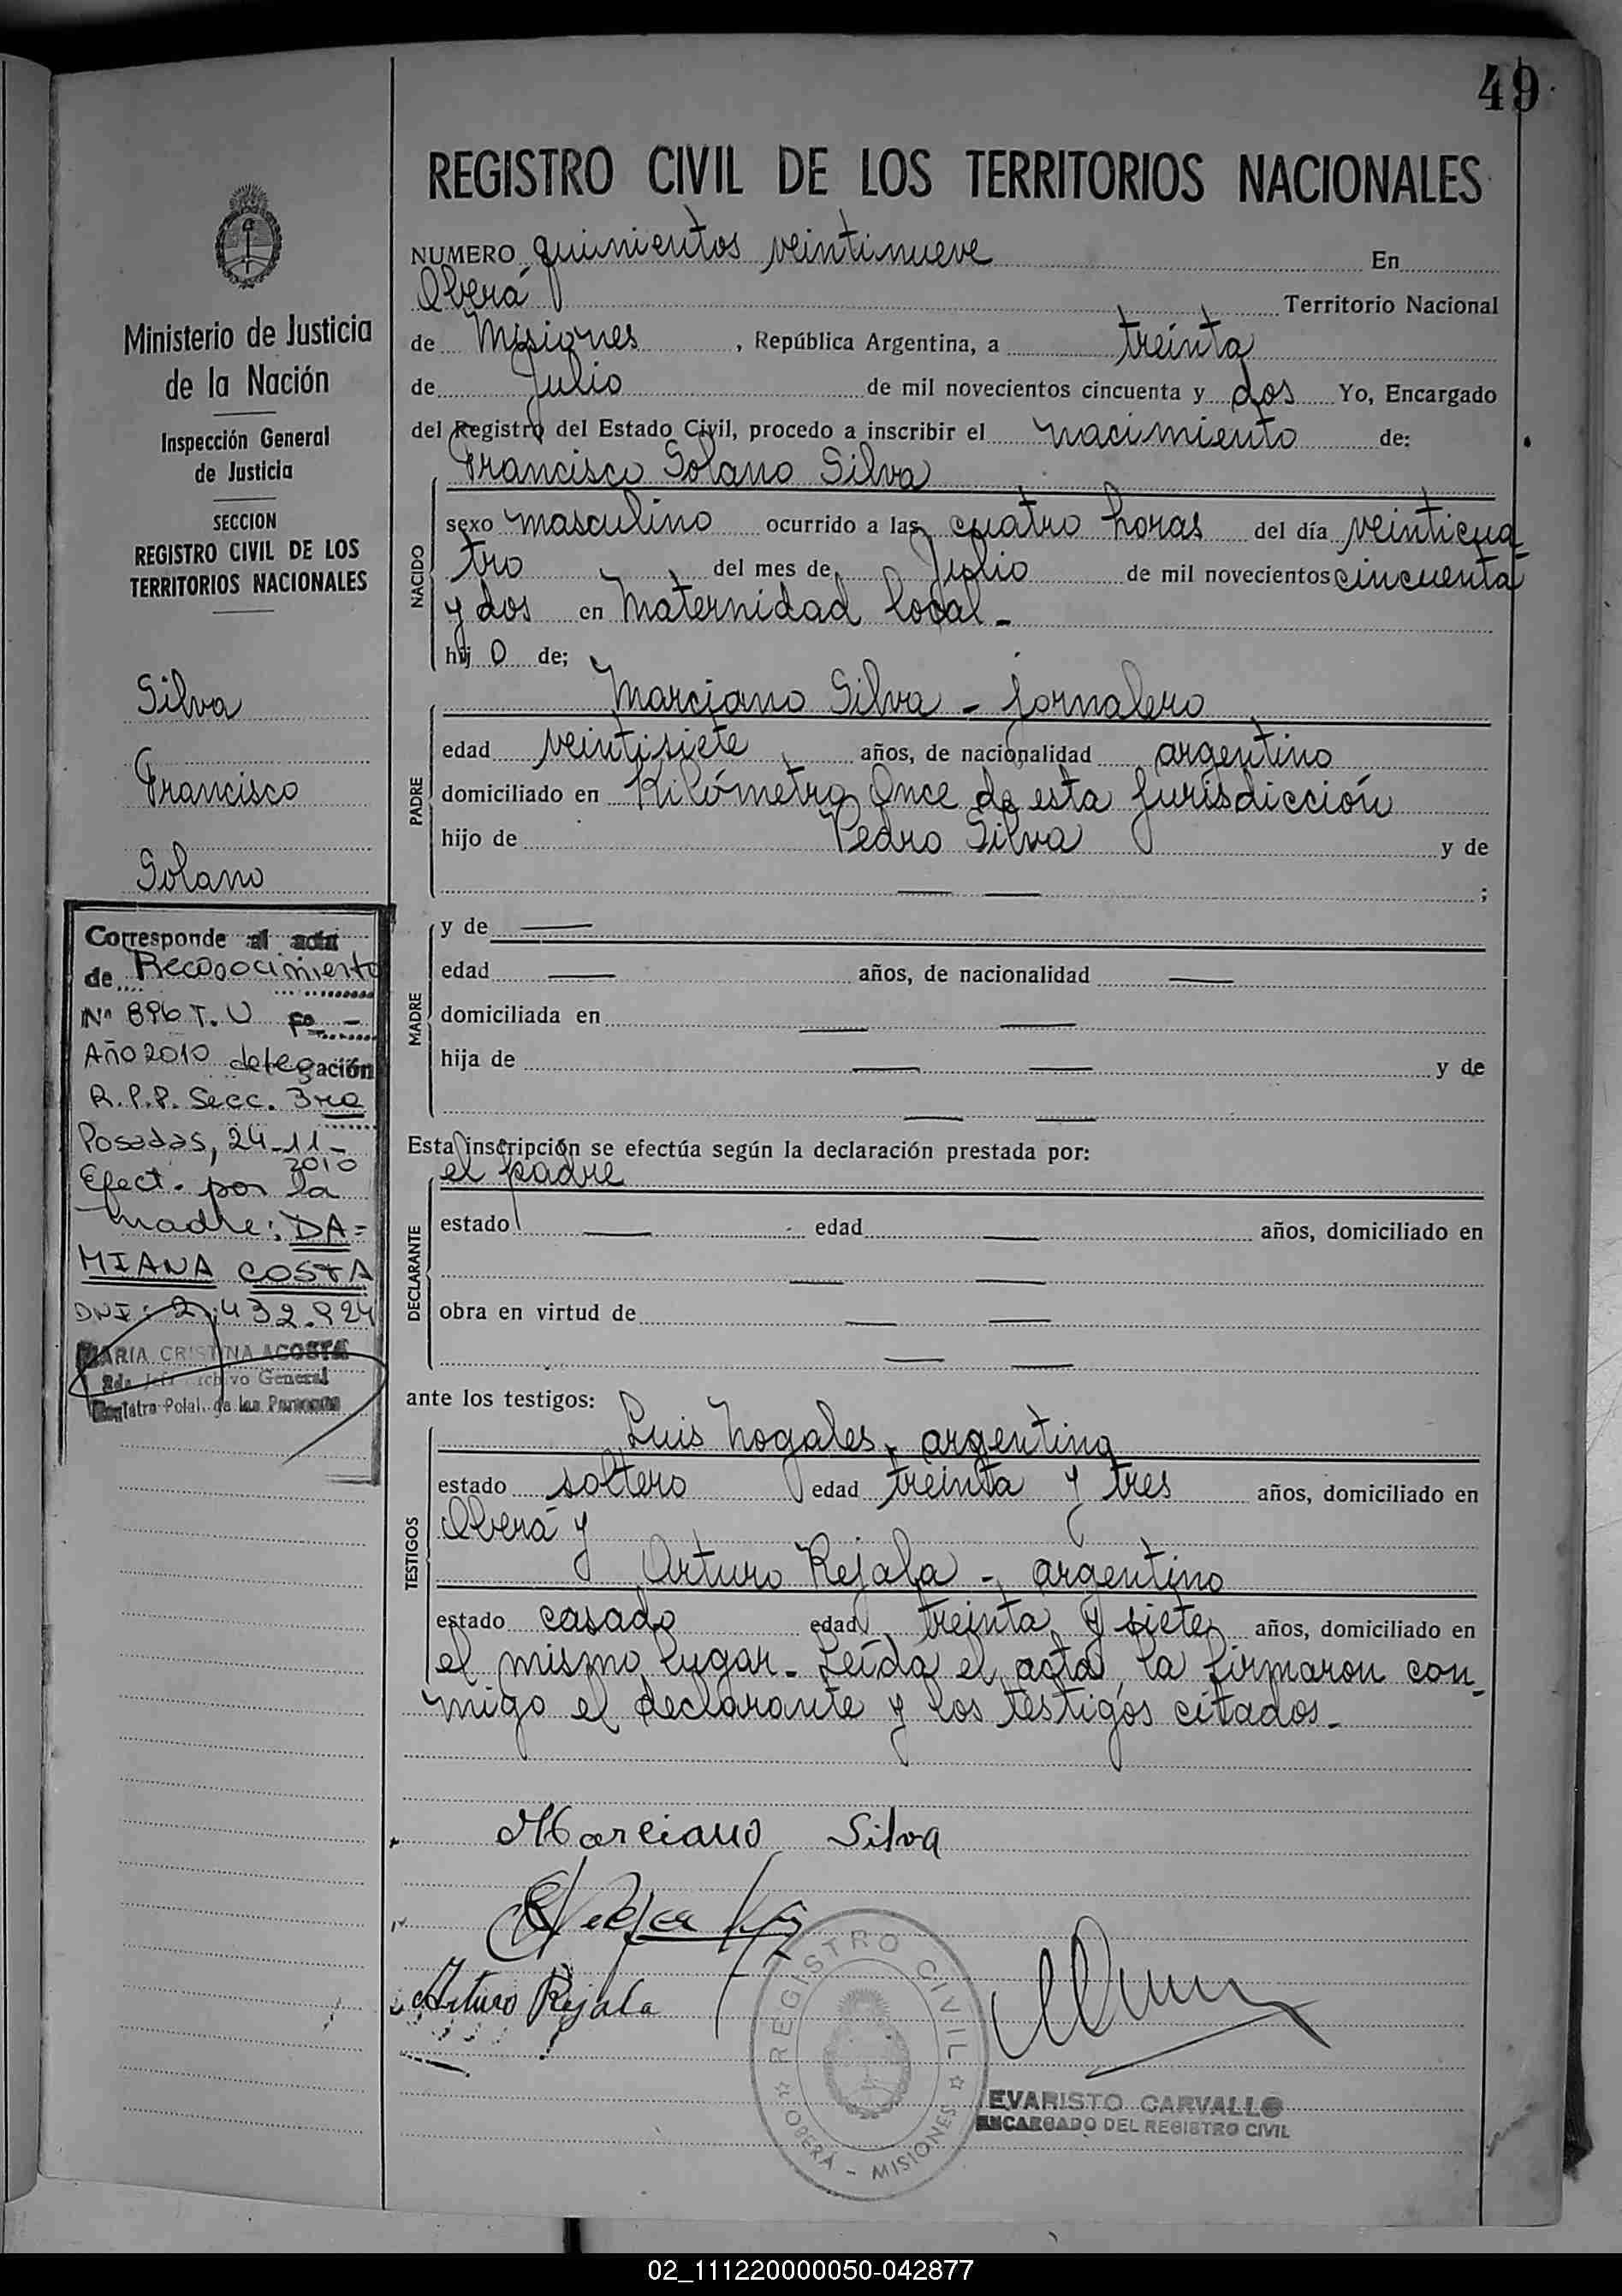 49
REGISTRO CIVIL DE LOS TERRITORIOS NACIONALES
NUMERO quinientos veintinueve En
Oberá Territorio Nacional
de Misiones, República Argentina, a treinta
de Julio de mil novecientos cincuenta y dos Yo, Encargado
del Registro del Estado Civil, procedo a inscribir el nacimiento de:
Francisco Solano Silva
NACIDO
sexo masculino ocurrido a las cuatro horas del día veinticua-
tro del mes de Julio de mil novecientos cincuenta
y dos en Maternidad local.-
hij o de;
Marciano Silva - jornalero
PADRE
edad veintisiete años, de nacionalidad argentino
domiciliado en Kilómetro Once de esta jurisdicción
hijo de Pedro Silva y de
— — ;
MADRE
y de —
edad — años, de nacionalidad —
domiciliada en — —
hija de — — y de
— —
Esta inscripción se efectúa según la declaración prestada por:
el padre
DECLARANTE
estado — edad — años, domiciliado en
— —
obra en virtud de — —
— —
ante los testigos:
Luis Nogales, argentino
TESTIGOS
estado soltero edad treinta y tres años, domiciliado en
Oberá y
Arturo Rejala - argentino
estado casado edad treinta y siete años, domiciliado en
el mismo lugar.- Leída el acta la firmaron con-
migo el declarante y los testigos citados.-
Marciano Silva
Arturo Rejala
REGISTRO CIVIL
OBERÁ - MISIONES
EVARISTO CARVALLO
ENCARGADO DEL REGISTRO CIVIL
Ministerio de Justicia
de la Nación
Inspección General
de Justicia
SECCION
REGISTRO CIVIL DE LOS
TERRITORIOS NACIONALES
Silva
Francisco
Solano
Corresponde al acta
de Reconocimiento
Nº 896 T. U Fº -
Año 2010 delegación
R.P.P. Secc. 3ra
Posadas, 24-11-
2010
Efect. por la
madre: DA=
MIANA COSTA
DNI: 2.432.924
MARIA CRISTINA ACOSTA
Archivo General
de las Personas
02_111220000050-042877